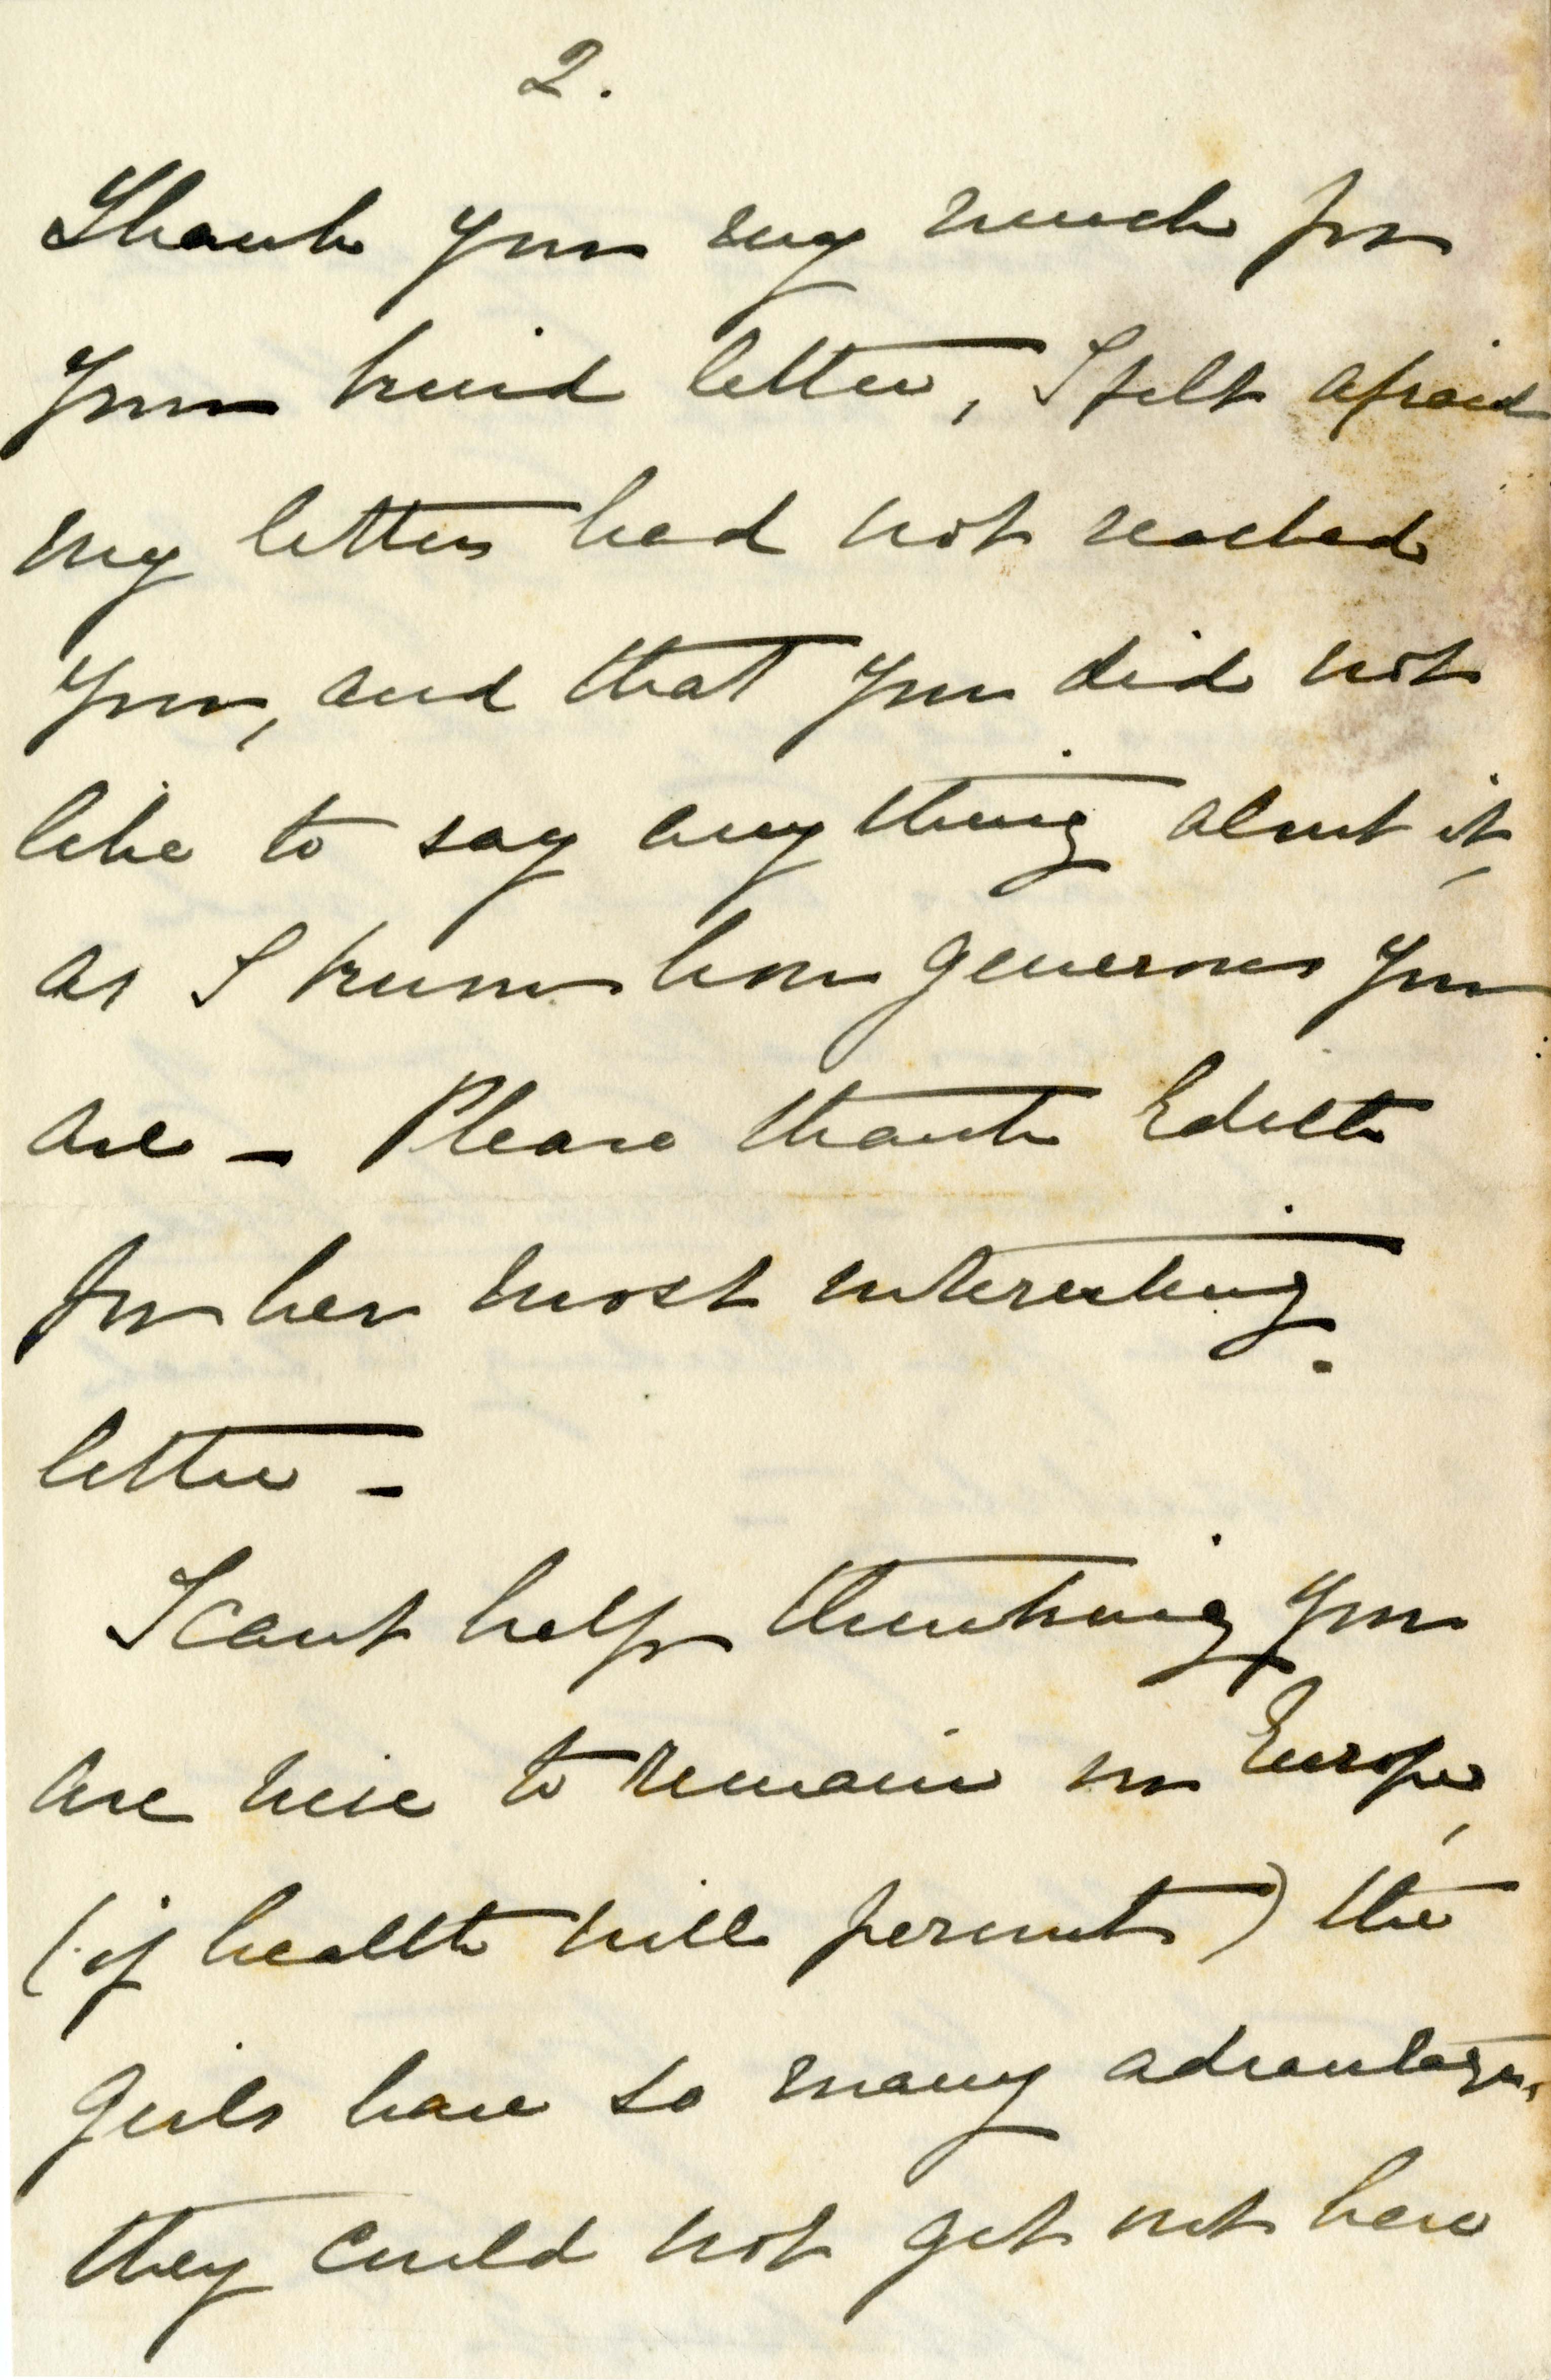 2.
Thank you very much for
your kind letter, I felt afraid
my letters had not reached
you, and that you did not
like to say anything about it,
as I know how generous you
are – Please thank Edith
for her most interesting
letter –
I cant help thinking you
are wise to remain in Europe,
(if health will permit) the
girls have so many advantages,
they could not get out here